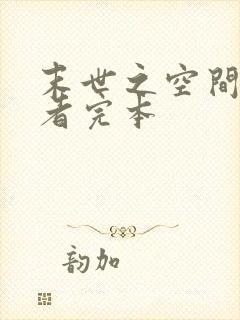 末世之空间
者完本
韵加